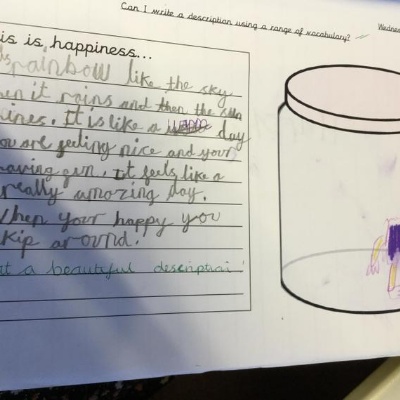 Can I write a description using a range of vocabulary?
Wednes
is is happiness...
rainbow like the sky
en it rains and then the sun
ines. It is like a day
ou are feeling nice and your
having fun. It feels like a
really amazing day.
When your happy you
kip around.
at a beautiful description!